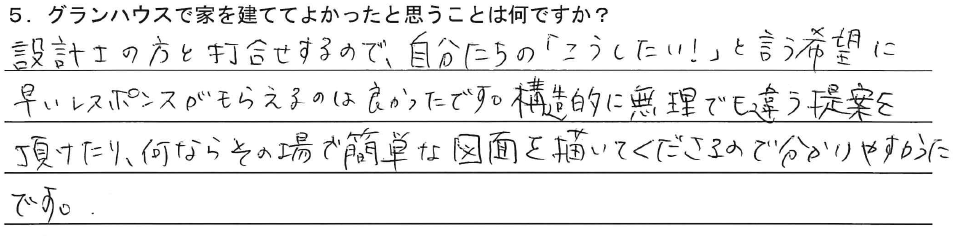 5．グランハウスで家を建ててよかったと思うことは何ですか？
設計士の方と打合せするので、自分たちの「こうしたい！」と言う希望に
早いレスポンスがもらえるのは良かったです。構造的に無理でも違う提案を
頂けたり、何ならその場で簡単な図面を描いてくださるので分かりやすかった
です。